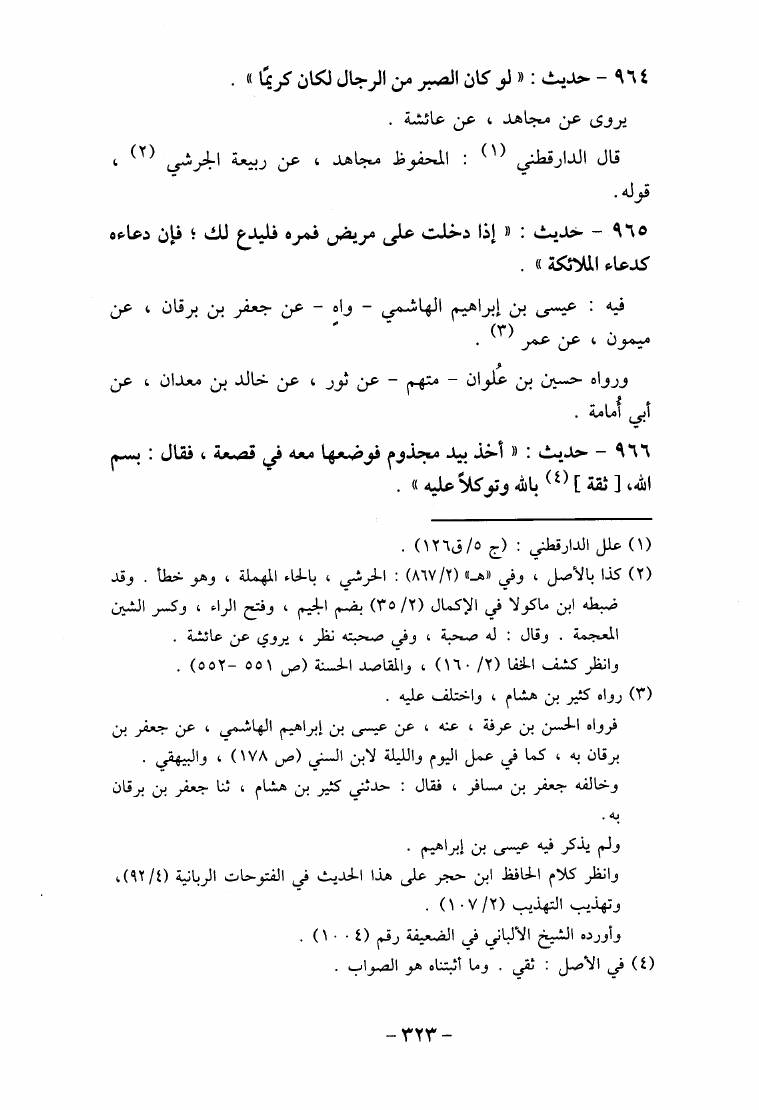 ٩٦٤ – حديث : « لو كان الصبر من الرجال لكان كريمًا » .
يروى عن مجاهد ، عن عائشة .
قال الدارقطني (١) : المحفوظ مجاهد ، عن ربيعة الجرشي (٢) ،
قوله.
٩٦٥ – حديث : « إذا دخلت على مريض فمره فليدع لك ؛ فإن دعاءه
كدعاء الملائكة » .
فيه : عيسى بن إبراهيم الهاشمي – واهٍ – عن جعفر بن برقان ، عن
ميمون ، عن عمر (٣) .
ورواه حسين بن عُلوان – متهم – عن ثور ، عن خالد بن معدان ، عن
أبي أُمامة .
٩٦٦ – حديث : « أخذ بيد مجذوم فوضعها معه في قصعة ، فقال : بسم
الله، [ ثقة ] (٤) بالله وتوكلاً عليه » .
(١) علل الدارقطني : (ج ٥/ق١٢٦) .
(٢) كذا بالأصل ، وفي «هـ» (٨٦٧/٢) : الحرشي ، بالحاء المهملة ، وهو خطأ . وقد
ضبطه ابن ماكولا في الإكمال (٣٥/٢) بضم الجيم ، وفتح الراء ، وكسر الشين
المعجمة . وقال : له صحبة ، وفي صحبته نظر ، يروي عن عائشة .
وانظر كشف الخفا (١٦٠/٢) ، والمقاصد الحسنة (ص ٥٥١ –٥٥٢) .
(٣) رواه كثير بن هشام ، واختلف عليه .
فرواه الحسن بن عرفة ، عنه ، عن عيسى بن إبراهيم الهاشمي ، عن جعفر بن
برقان به ، كما في عمل اليوم والليلة لابن السني (ص ١٧٨) ، والبيهقي .
وخالفه جعفر بن مسافر ، فقال : حدثني كثير بن هشام ، ثنا جعفر بن برقان
به.
ولم يذكر فيه عيسى بن إبراهيم .
وانظر كلام الحافظ ابن حجر على هذا الحديث في الفتوحات الربانية (٩٢/٤)،
وتهذيب التهذيب (١٠٧/٢) .
وأورده الشيخ الألباني في الضعيفة رقم (١٠٠٤) .
(٤) في الأصل : ثقي . وما أثبتناه هو الصواب .
– ٣٢٣ –